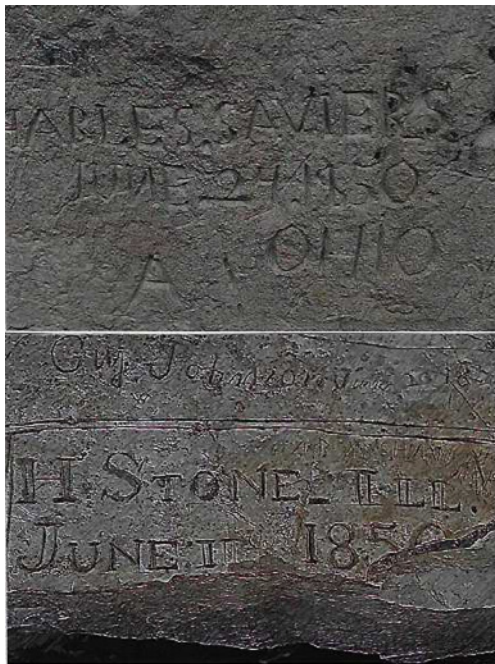 HARLES SAVIERS
JUNE 24 1850
OHIO
A
Guy Johnson June 2 18
H. STONE_ILL.
JUNE II 1850